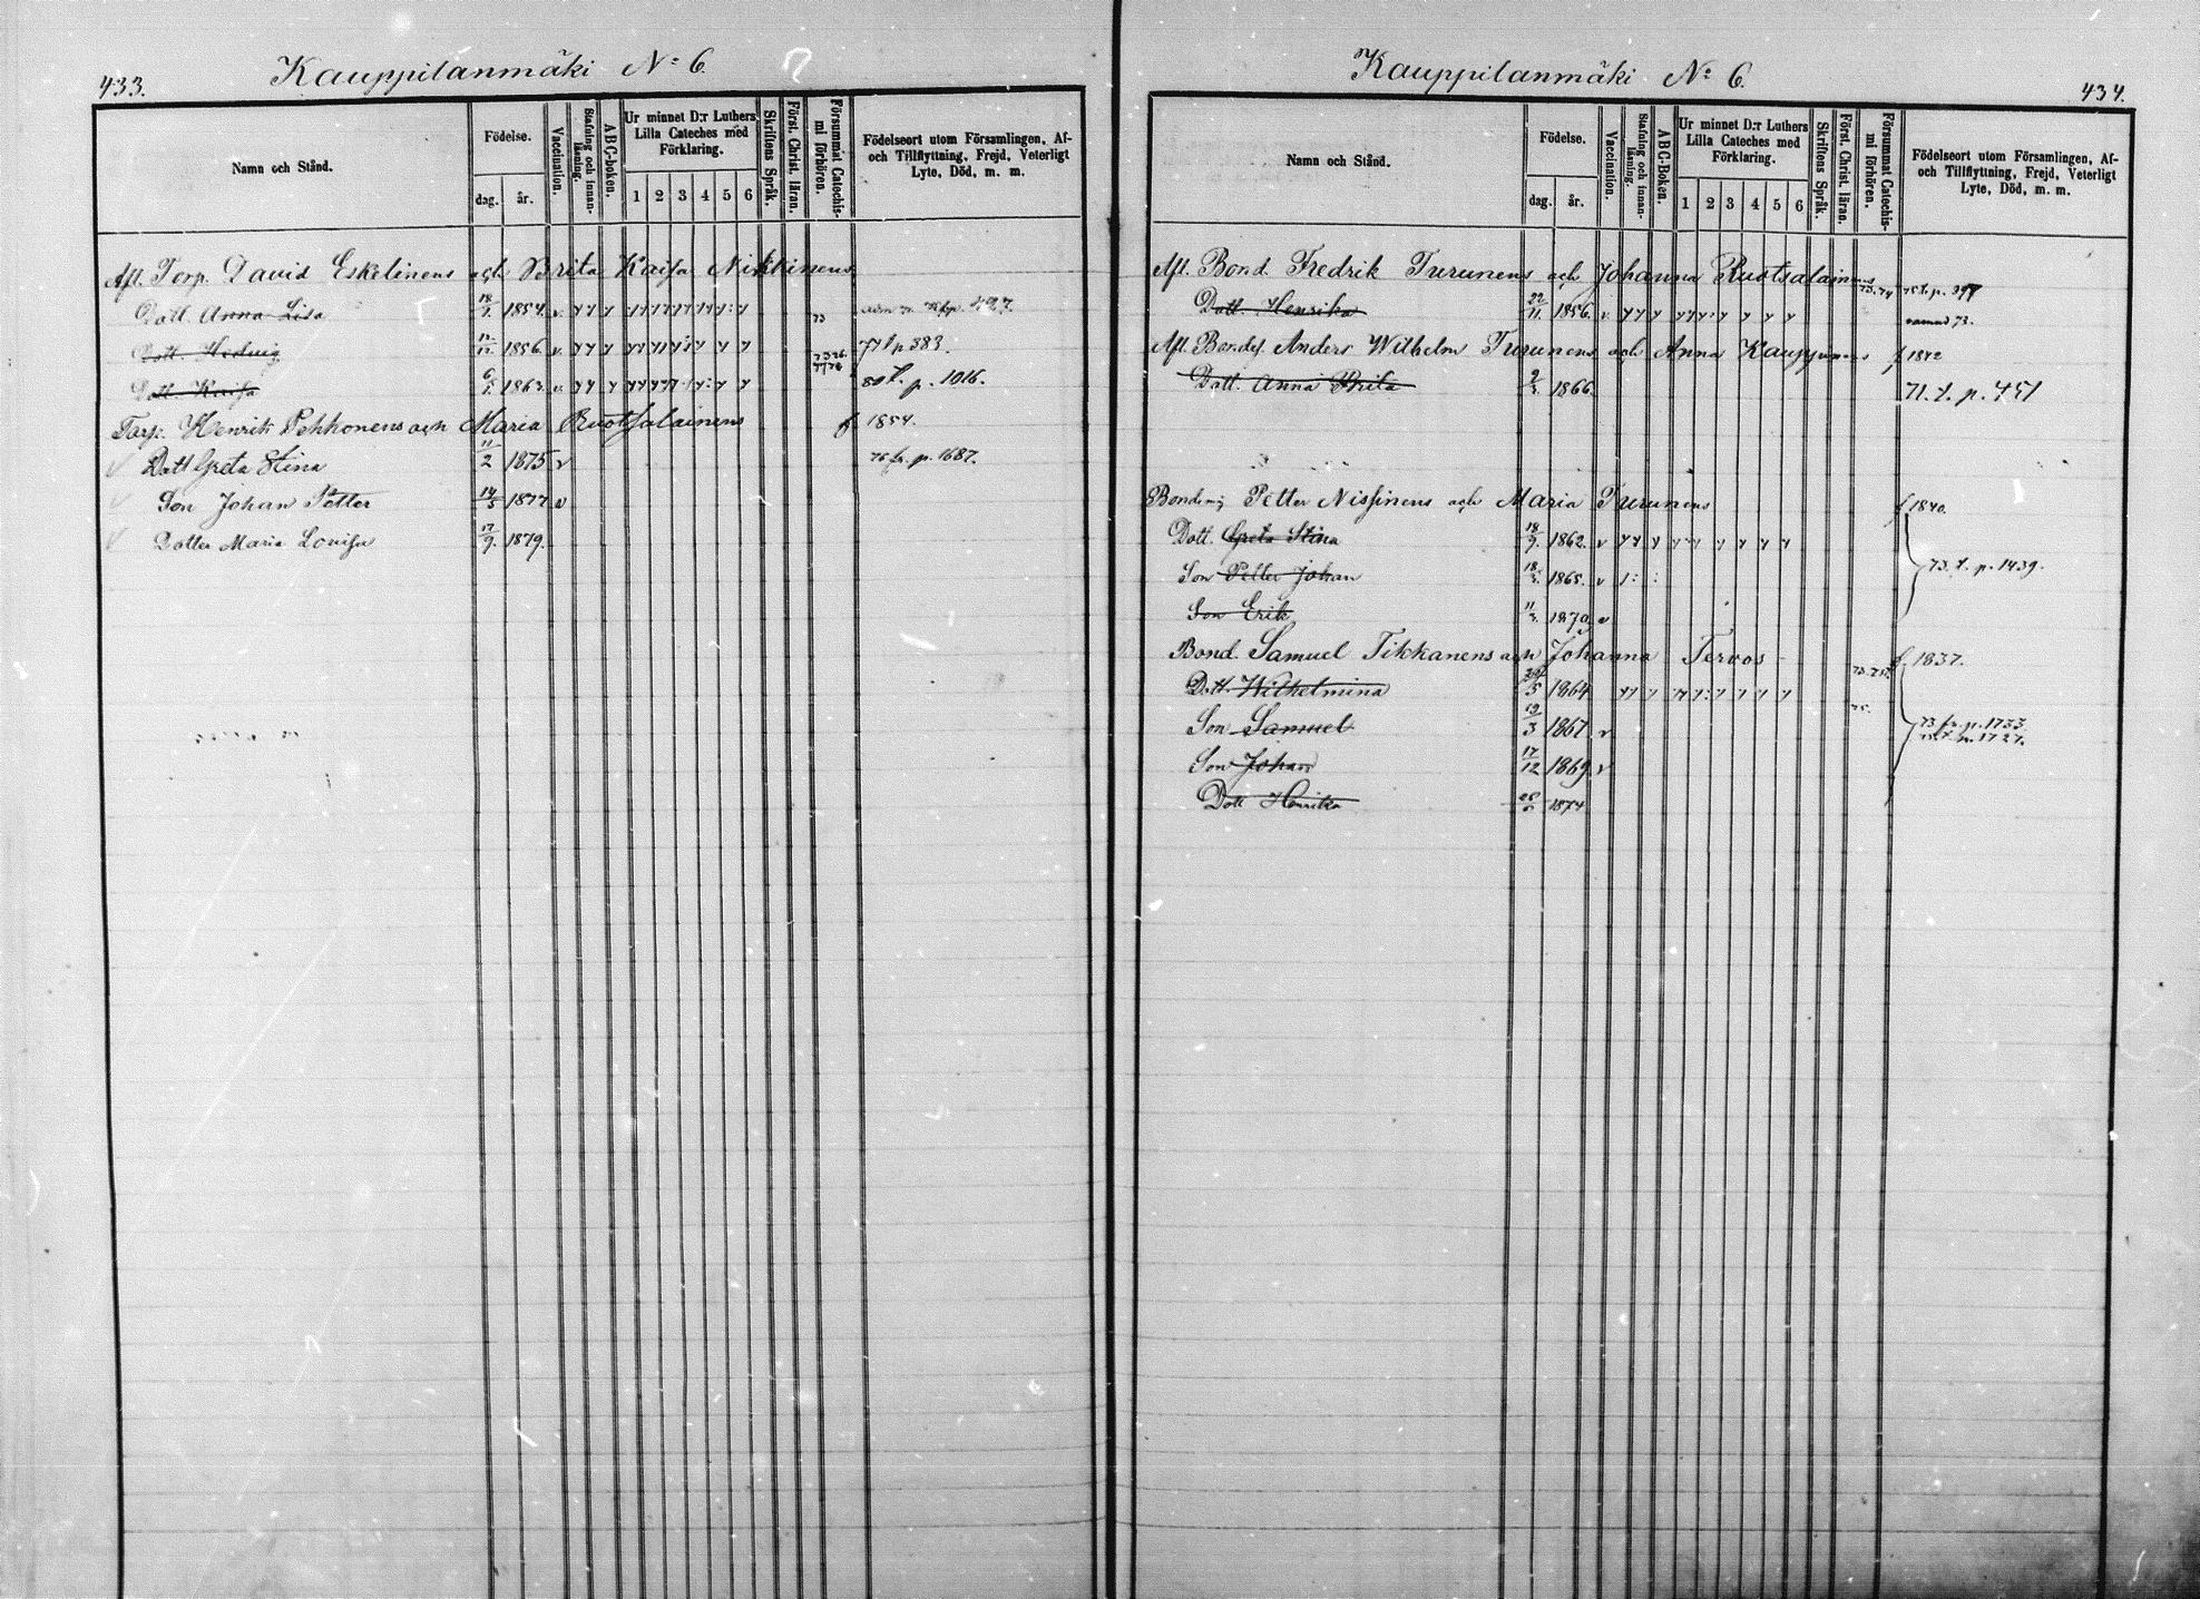 433.
Kauppilanmäki No 6.
Namn och Stånd.
Födelse.
dag.
år.
Vaccination.
Stafning och innanläsning.
ABC-boken.
Ur minnet D:r Luthers
Lilla Cateches med
Förklaring.
1 2 3 4 5 6
Skriftens Språk.
Först. Christ. läran.
Försummat Catechismi förhören.
Födelseort utom Församlingen, Af-
och Tillflyttning, Frejd, Veterligt
Lyte, Död, m. m.
Afl. Torp. David Eskelinens och Brita Kaisa Nikkinens
Dott. Anna Lisa 18/1. 1854. v 73 427.
Dott. Hedvig 12/12. 1856. v 77 t p 383.
Dott. Kaisa 6/1. 1862. v 80 t. p. 1016.
Torp. Henrik Pekkonens och Maria Ruotsalainens f 1854.
Dott Greta Stina 11/2 1875 v 76 fr. p. 1687.
Son Johan Petter 14/5 1877 v
Dotter Maria Lovisa 17/9. 1879.
434.
Kauppilanmäki No 6.
Namn och Stånd.
Födelse.
dag.
år.
Vaccination.
Stafning och innanläsning.
ABC-Boken.
Ur minnet D:r Luthers
Lilla Cateches med
Förklaring.
1 2 3 4 5 6
Skriftens Språk.
Först. Christ. läran.
Försummat Catechismi förhören.
Födelseort utom Församlingen, Af-
och Tillflyttning, Frejd, Veterligt
Lyte, Död, m. m.
Afl. Bond. Fredrik Turunens och Johanna Ruotsalainens
Dott. Henrika 22/11. 1856. v 73.74
Afl. Bondes. Anders Wilhelm Turunens och Anna Kauppinens f 1842
Dott. Anna Brita 9/3. 1866. 71. t. p. 451
Bondem; Petter Nissinens och Maria Turunens f 1840.
Dott. Greta Stina 18/9. 1862. v
Son Petter Johan 18/3. 1865. v 73. t. p. 1439.
Son Erik 11/3. 1870 v
Bond. Samuel Tikkanens och Johanna Tervos f. 1837.
Dott. Wilhelmina 24/5 1864
Son Samuel 19/3 1867 v 73 fr. p. 1733.
Son Johan 17/12 1869 v
Dott Henrika 1874